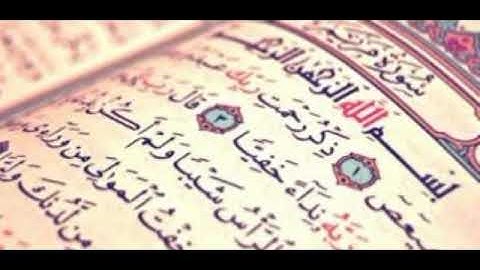 سُورَةُ مَرْيَمَ
بِسْمِ اللَّهِ الرَّحْمَٰنِ الرَّحِيمِ
يعص ١ ذِكْرُ رَحْمَتِ رَبِّكَ
رَبَّهُ نِدَاءً خَفِيًّا ٣ قَالَ رَبِّ
الرَّأْسُ شَيْبًا وَلَمْ أَكُن
خِفْتُ الْمَوَالِيَ مِن وَرَاءِي
مِن لَّدُنكَ